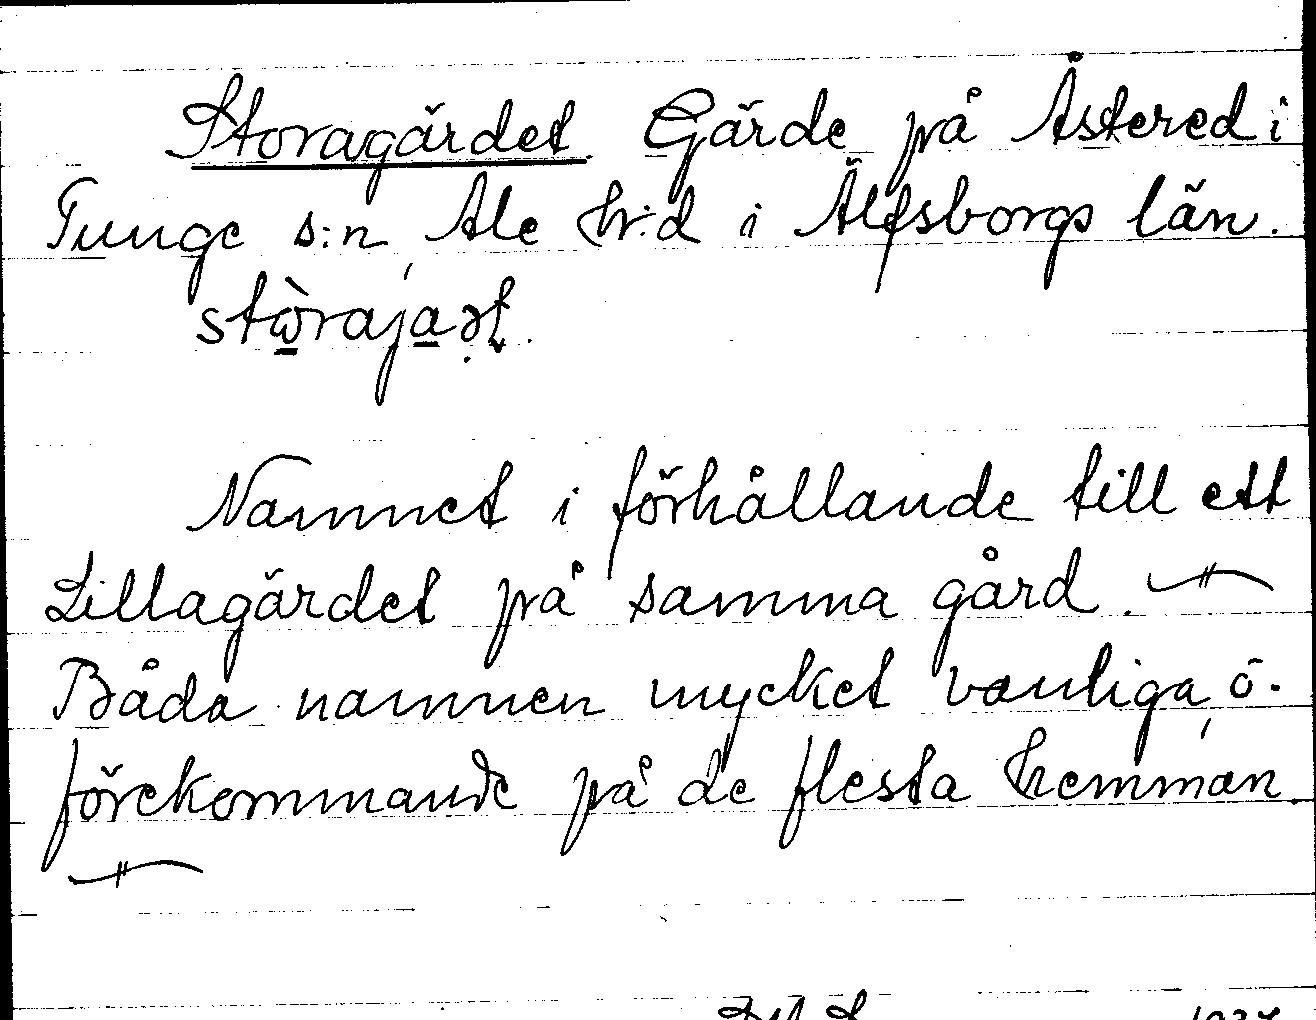 Storagärdet. Gärde på Åstered i
Tunge s:n, Ale hr:d i Älfsborgs län.
stὼ̲raja̲ət.
Namnet i förhållande till ett
Lillagärdet på samma gård.
Båda namnen mycket vanliga, o.
förekommande på de flesta hemman